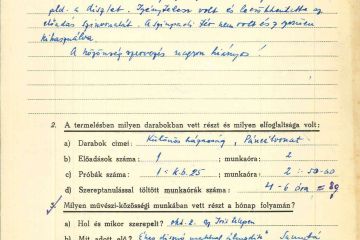 pld. a díszlet. Igénytelen volt és lecsökkentette az
előadás színvonalát. A színpadi tér nem volt egészen
kihasználva.
A közönség szervezés nagyon hiányos!
2. A termelésben milyen darabokban vett részt és milyen elfoglaltsága volt:
a) Darabok címei: Különös házasság, Páncélvonat
b) Előadások száma: 1 ; munkaóra: 2
c) Próbák száma: 1 = kb. 25 ; munkaóra: 2 = 50-60
d) Szereptanulással töltött munkaórák száma: 4-6 óra =
3. Milyen művészi-közösségi munkában vett részt a hónap folyamán?
a) Hol és mikor szerepelt? okt. 2.
b) Mit adott elő?